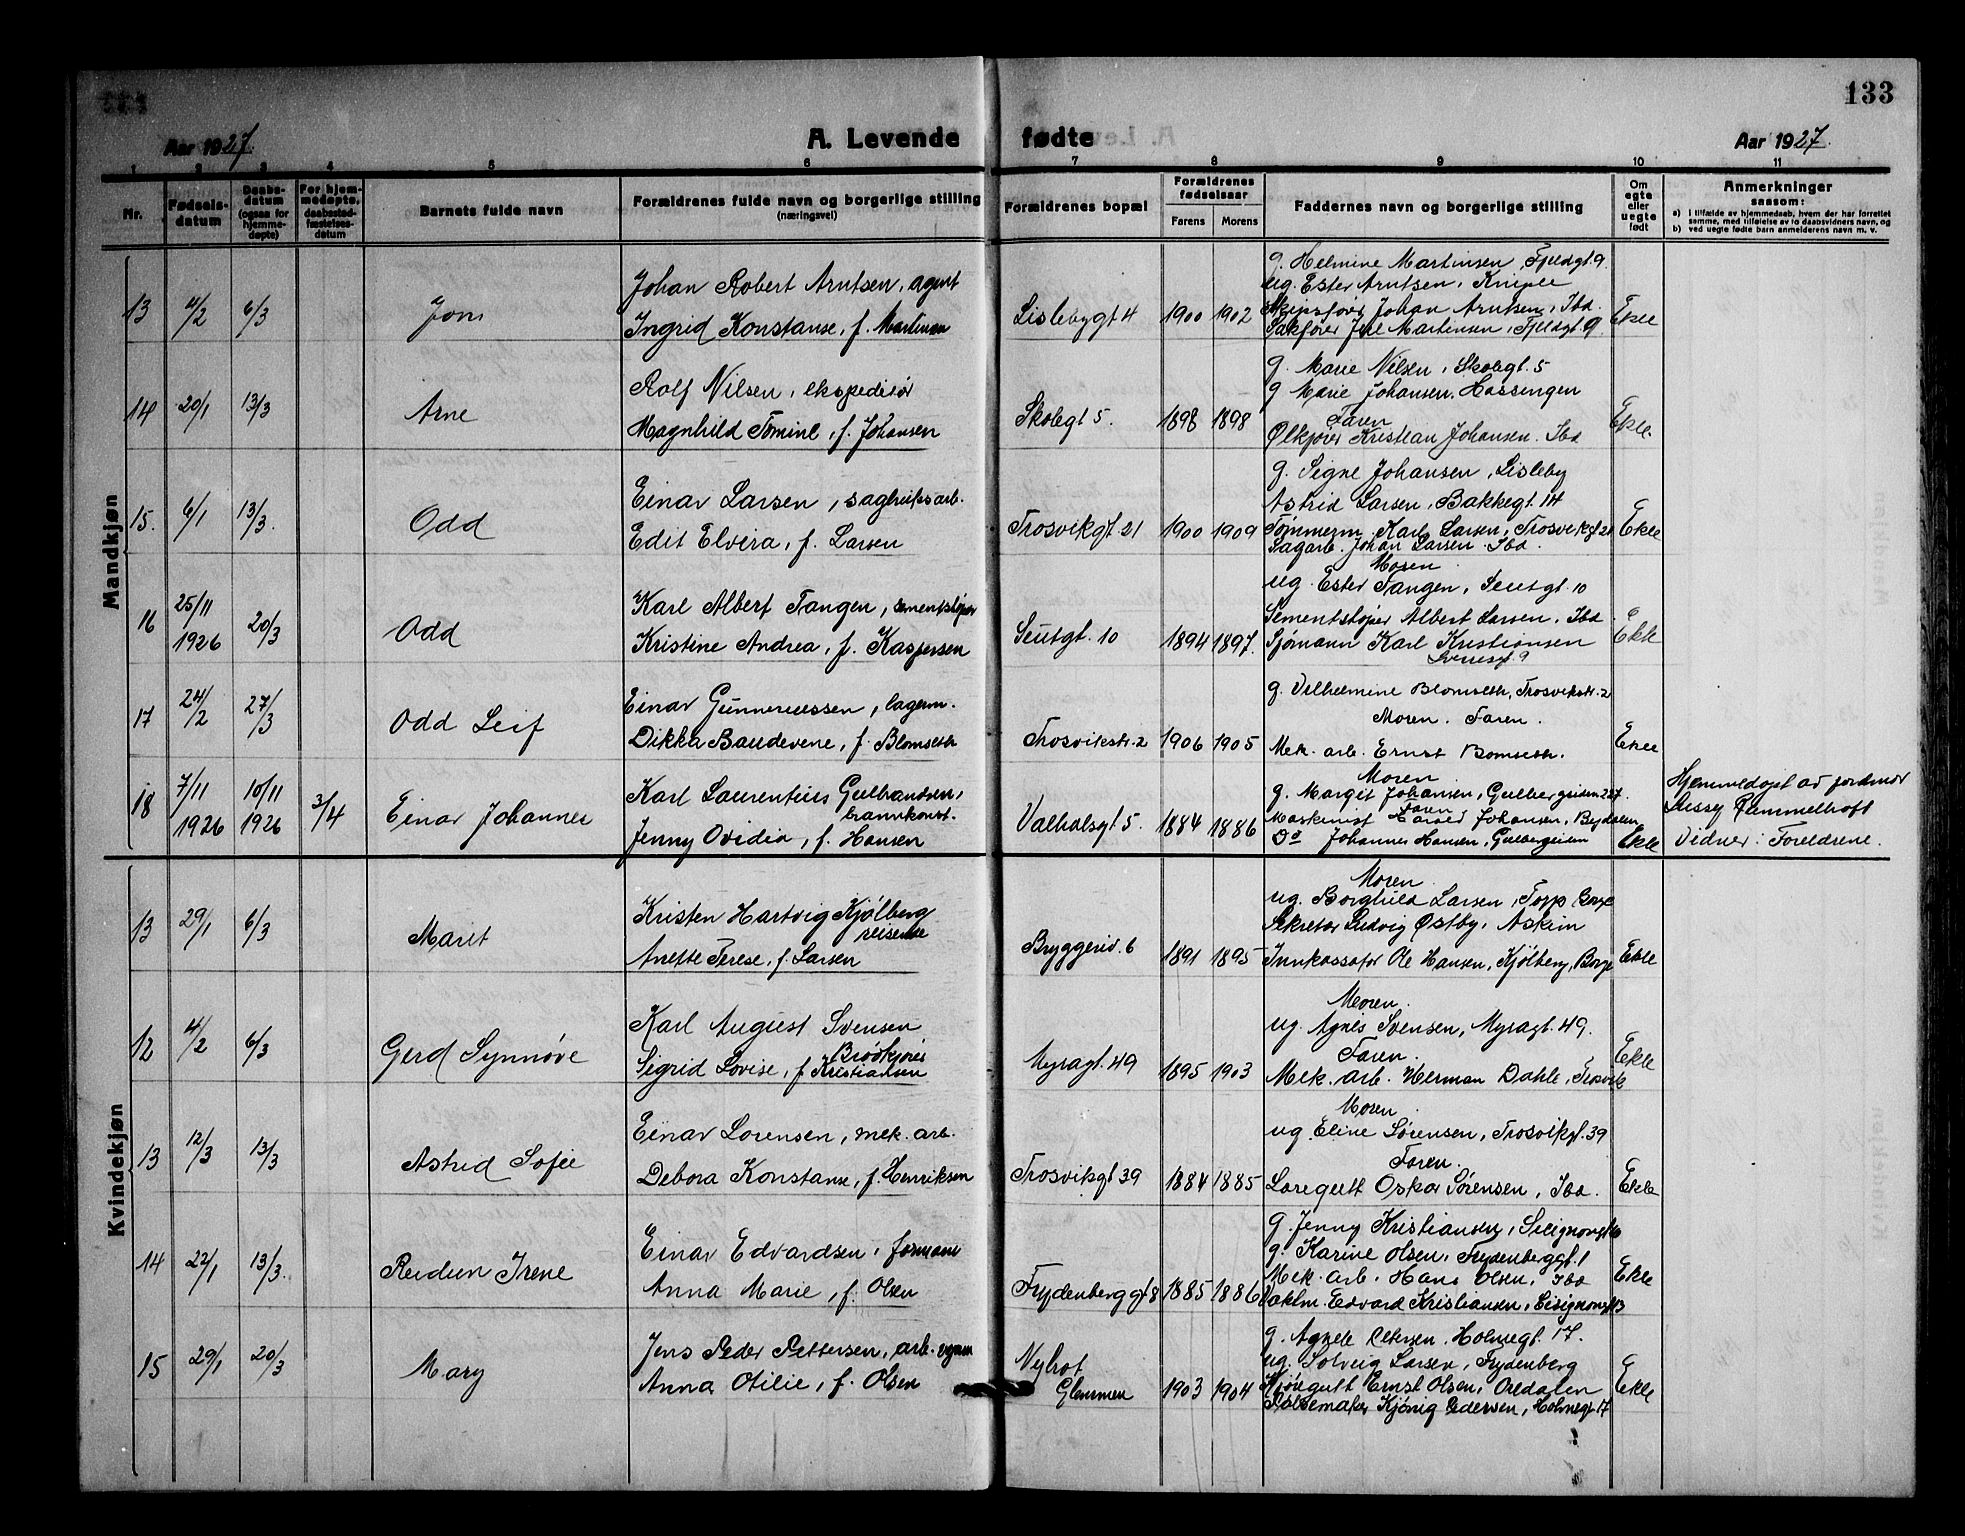 133
Aar 1927.
A. Levende fødte
Aar 1927.
1 2 3 4 5 6 7 8 9 10 11
Nr.
Fødsels-
datum
Daabs-
datum
(ogsaa for
hjemme-
døpte)
For hjem-
medøpte,
daabsstad-
fæstelses-
datum
Barnets fulde navn
Forældrenes fulde navn og borgerlige stilling
(næringsvei)
Forældrenes bopæl
Forældrenes
fødselsaar
Farens Morens
Faddernes navn og borgerlige stilling
Om
egte
eller
uegte
født
Anmerkninger
saasom:
a) i tilfælde av hjemmedaab, hvem der har forrettet
samme, med tilføielse av to daabsvidners navn, og
b) ved uegte fødte barn anmelderens navn m. v.
Mandkjøn
13 4/2 6/3
Johan Robert Arntsen, agent
Ingrid Konstanse, f. Martinsen
Lislebygt 4 1900 1902
g. Helmine Martinsen, Fjeldgt. 9.
ug. Ester Arntsen, Kniple
Skipsfører Johan Arntsen, Ibd.
Sakfører Juel Martinsen, Fjeldgt. 9.
Ekte
14 20/1 13/3
Arne
Rolf Nilsen, ekspeditør
Magnhild Tomine, f. Johansen
Skolegt 5. 1898 1898
g. Marie Nilsen, Skolegt. 5
g Marie Johansen. Hassengen
Faren
Ølkjører Kristian Johansen. Ibd
Ekte.
15. 6/1 13/3
Odd
Einar Larsen, sagbruksarb.
Edit Elvira, f. Larsen
Trosvikgt 21 1900 1909
g. Signe Johansen, Lisleby
Astrid Larsen, Bakkegt. 14
Tømmerm. Karl Larsen, Trosvikgt 21
Sagarb. Johan Larsen Ibd.
Ekte
16 25/11
1926 20/3
Odd
Karl Albert Tangen, sementstøper
Kristine Andrea, f. Kaspersen
Seutgt. 10 1894 1897.
Moren
ug. Ester Tangen, Seutgt. 10
Sementstøper Albert Larsen, Ibd
Sjømann Karl Kristiansen
Sverresgt. 9
Ekte
17 24/2 27/3
Odd Leif
Einar Gunnerussen, lagerm.
Dikka Baudevene, f. Blomseth
Trosvikstr. 2 1906 1905
g. Vilhelmine Blomseth, Trosvikstr. 2
Moren. Faren.
Mek. arb. Ernst Bomseth.
Ekte
18 7/11
1926 10/11
1926 3/4
Einar Johannes
Karl Laurentius Gulbrandsen,
brannkonst.
Jenny Ovidia, f. Hansen
Valhalsgt 5. 1884 1886
Moren
g. Margit Johansen, Gulbergsiden 227.
Faren
Maskinist Harald Johansen, Bydalen
Do Johannes Hansen, Gulbergsiden
Ekte
Hjemmedøpt av jordmor
Lussy Rammelhoft
Vidner: Foreldrene.
Kvindekjøn
13 29/1 6/3
Marit
Kristen Hartvig Kjølberg
reisende
Anette Terese, f. Larsen
Bryggeriv. 6 1891 1895
Moren
ug. Borghild Larsen, Torp Borge
Sekretær Ludvig Østby, Askim
Innkassator Ole Hansen, Kjølberg, Borge
Ekte
12 4/2 6/3
Gerd Synnøve
Karl August Svensen
Brødkjører
Sigrid Lovise, f. Kristiansen
Myragt. 49 1895 1903
Moren.
ug. Agnes Svensen, Myragt. 49.
Faren.
Mek. arb. Herman Dahle, Trosvik
Ekte
13 12/3 13/3
Astrid Sofie
Einar Sørensen, mek. arb.
Debora Konstanse, f. Henriksen
Trosvikgt 39 1884 1885
Moren
ug. Eline Sørensen, Trosvikgt. 39
Faren.
Loregutt Oskar Sørensen, Ibd.
Ekte
14 22/1 13/3.
Reidun Irene
Einar Edvardsen, formann
Anna Marie, f. Olsen
Frydenberggt 8 1885 1886
g. Jenny Kristiansen,
g. Karine Olsen, Frydenberggt. 1
Mek. arb. Hans Olsen, Ibd
Vaktm. Edvard Kristiansen,
Ekte
15 29/1 20/3
Mary
Jens Peder Pettersen, arb.
Anna Otilie, f. Olsen
Nyhot
Glemmen 1903 1904
g. Agnete Petersen, Holmegt. 17.
ug. Solveig Larsen, Frydenberg
Ernst Olsen, Oredalen
Pølsemaker Kjønig Pedersen, Holmegt. 17
Ekte